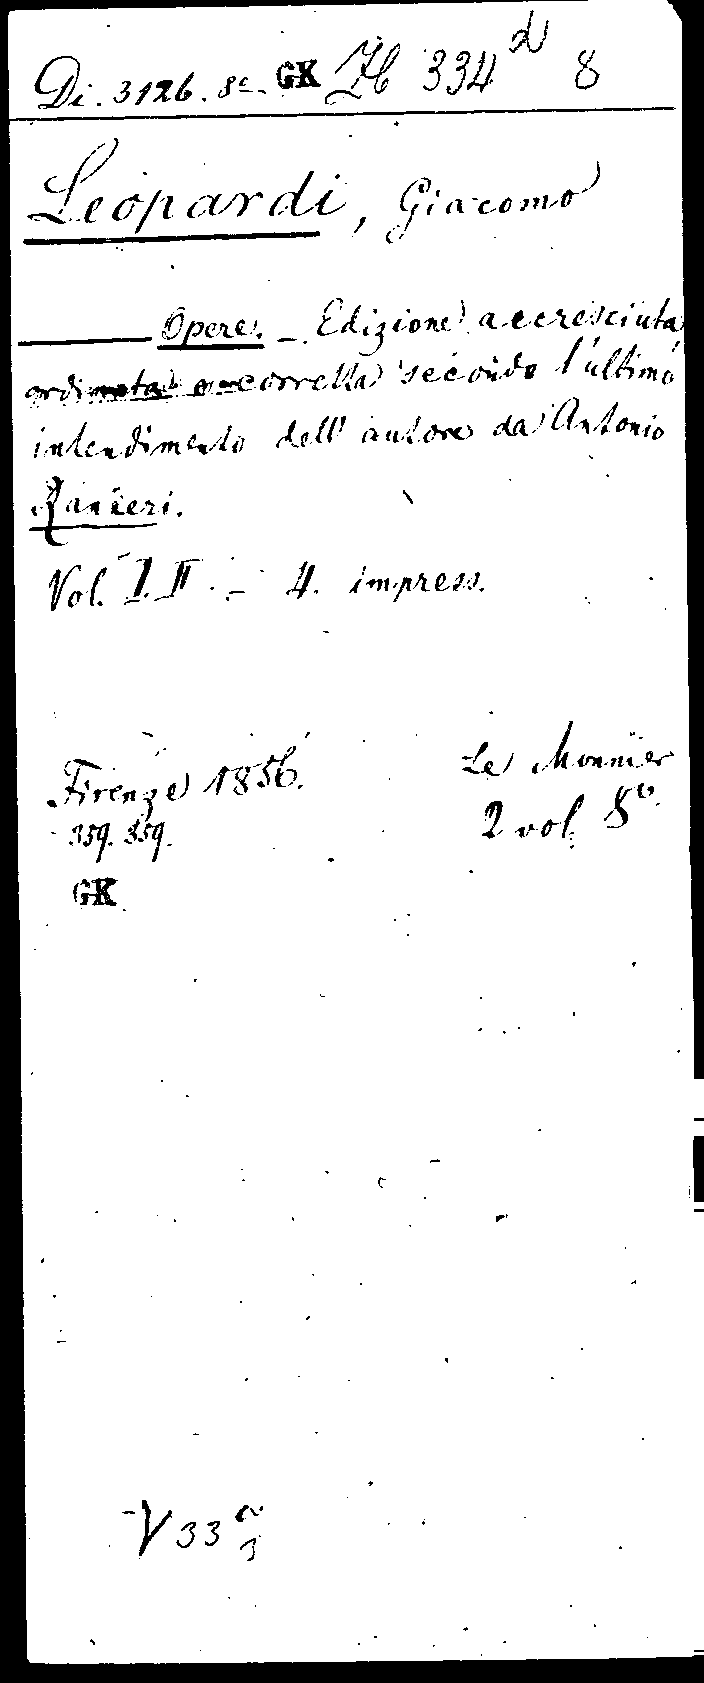 Di. 3126. 8º. GK Zb 334 d 8
Leopardi, Giacomo
Opere. – Edizione accresciuta
ordinata e corretta secondo l'ultimo
intendimento dell' autore da Antonio
Ranieri.
Vol. I. II. – 4. impress.
Firenze 1856. Le Monnier
359. 359. 2 vol. 8º.
GK
V 33 a
3